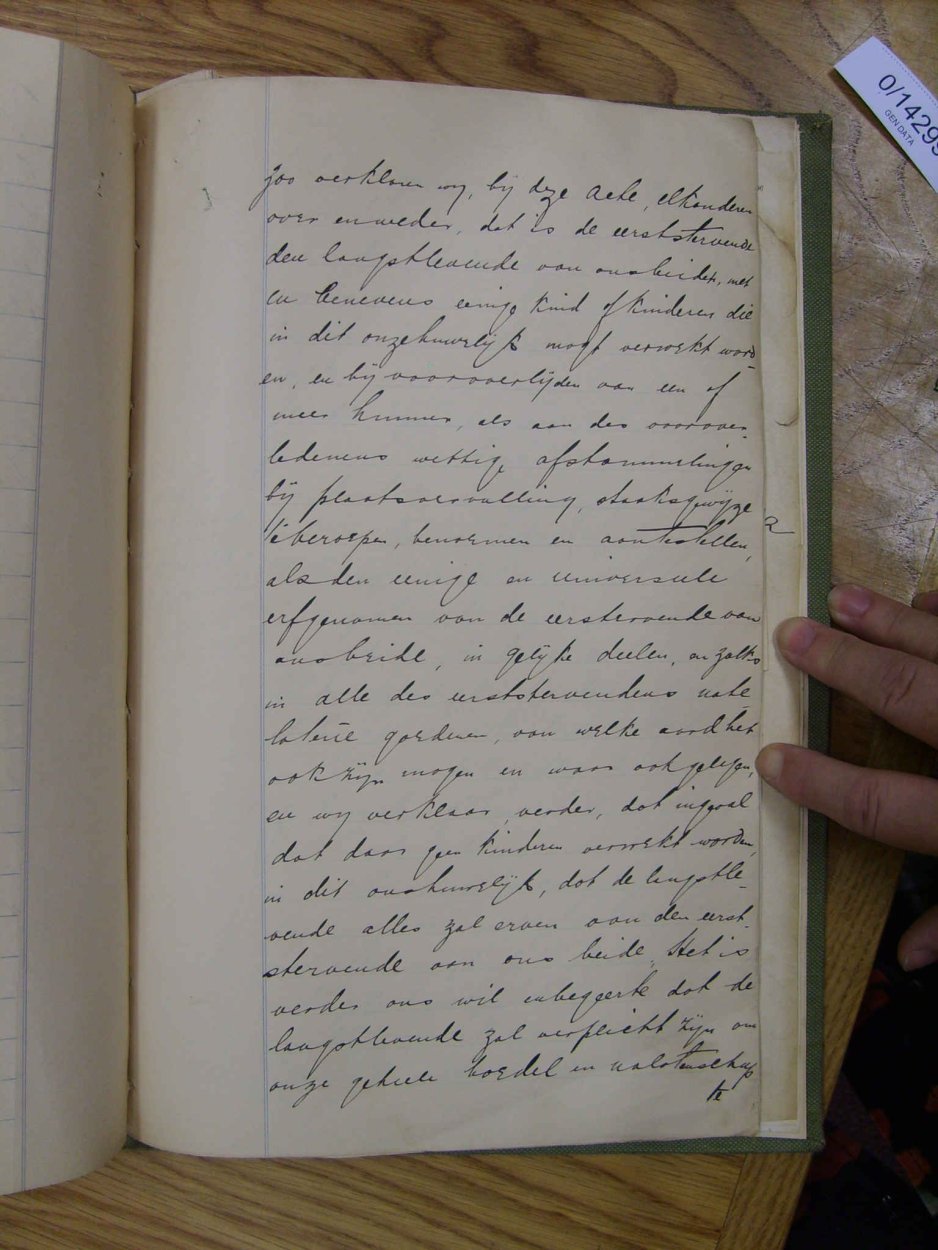 zoo verklaren wy, bij deze Acte, elkanderen
over en weder, dat is de eerststervende
den langstlevende van onsbeiden, met
en benevens eenige kind of kinderen die
in dit onzehuwelijk mogt verwekt word
en, en bij vooroverlijden van een of
meer hunner, als aan des voorover-
ledenens wettige afstammelingen
bij plaatsvervulling, staaksgewijze
te beroepen, benoemen en aantestellen,
als den eenige en universeele
erfgenamen van de eerstervende van
onsbeide, in gelijke deelen, en zulks
in alle des eerststervendens nate-
latene goederen, van welke aard het
ook zijn mogen en waar ook gelegen,
en wy verklaar verder, dat ingeval
dat daar geen kinderen verwekt worden,
in dit onshuwelijk, dat de langstle-
vende alles zal erven van den eerst-
stervende van ons beide. Het is
verder ons wil en begeerte dat de
langstlevende zal verplicht zijn om
onze geheele boedel en nalatenschap
te
2
0/14299
GEN DATA